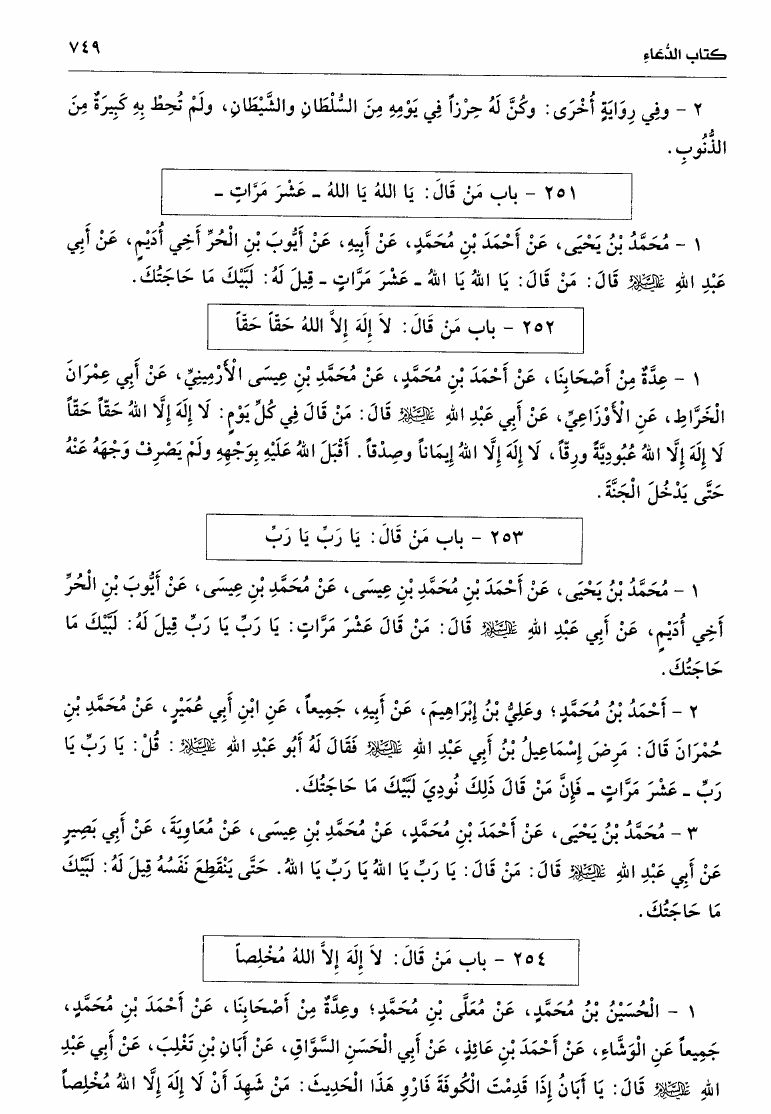 كتاب الدُّعَاءِ ٧٤٩
٢ - وفِي رِوَايَةٍ أُخْرَى: وكُنَّ لَهُ حِرْزاً فِي يَوْمِهِ مِنَ السُّلْطَانِ والشَّيْطَانِ، ولَمْ تُحِطْ بِهِ كَبِيرَةٌ مِنَ
الذُّنُوبِ.
٢٥١ - باب مَنْ قَالَ: يَا اللهُ يَا اللهُ - عَشْرَ مَرَّاتٍ -
١ - مُحَمَّدُ بْنُ يَحْيَى، عَنْ أَحْمَدَ بْنِ مُحَمَّدٍ، عَنْ أَبِيهِ، عَنْ أَيُّوبَ بْنِ الْحُرِّ أَخِي أُدَيْمٍ، عَنْ أَبِي
عَبْدِ اللهِ عَلَيْهِ السَّلَامُ قَالَ: مَنْ قَالَ: يَا اللهُ يَا اللهُ - عَشْرَ مَرَّاتٍ - قِيلَ لَهُ: لَبَّيْكَ مَا حَاجَتُكَ.
٢٥٢ - باب مَنْ قَالَ: لاَ إِلَهَ إِلاَّ اللهُ حَقّاً حَقّاً
١ - عِدَّةٌ مِنْ أَصْحَابِنَا، عَنْ أَحْمَدَ بْنِ مُحَمَّدٍ، عَنْ مُحَمَّدِ بْنِ عِيسَى الْأَرْمِينِيِّ، عَنْ أَبِي عِمْرَانَ
الْخَرَّاطِ، عَنِ الْأَوْزَاعِيِّ، عَنْ أَبِي عَبْدِ اللهِ عَلَيْهِ السَّلَامُ قَالَ: مَنْ قَالَ فِي كُلِّ يَوْمٍ: لَا إِلَهَ إِلَّا اللهُ حَقّاً حَقّاً
لَا إِلَهَ إِلَّا اللهُ عُبُودِيَّةً ورِقّاً، لَا إِلَهَ إِلَّا اللهُ إِيمَاناً وصِدْقاً. أَقْبَلَ اللهُ عَلَيْهِ بِوَجْهِهِ ولَمْ يَصْرِفْ وَجْهَهُ عَنْهُ
حَتَّى يَدْخُلَ الْجَنَّةَ.
٢٥٣ - باب مَنْ قَالَ: يَا رَبِّ يَا رَبِّ
١ - مُحَمَّدُ بْنُ يَحْيَى، عَنْ أَحْمَدَ بْنِ مُحَمَّدِ بْنِ عِيسَى، عَنْ مُحَمَّدِ بْنِ عِيسَى، عَنْ أَيُّوبَ بْنِ الْحُرِّ
أَخِي أُدَيْمٍ، عَنْ أَبِي عَبْدِ اللهِ عَلَيْهِ السَّلَامُ قَالَ: مَنْ قَالَ عَشْرَ مَرَّاتٍ: يَا رَبِّ يَا رَبِّ قِيلَ لَهُ: لَبَّيْكَ مَا
حَاجَتُكَ.
٢ - أَحْمَدُ بْنُ مُحَمَّدٍ؛ وعَلِيُّ بْنُ إِبْرَاهِيمَ، عَنْ أَبِيهِ، جَمِيعاً، عَنِ ابْنِ أَبِي عُمَيْرٍ، عَنْ مُحَمَّدِ بْنِ
حُمْرَانَ قَالَ: مَرِضَ إِسْمَاعِيلُ بْنُ أَبِي عَبْدِ اللهِ عَلَيْهِ السَّلَامُ فَقَالَ لَهُ أَبُو عَبْدِ اللهِ عَلَيْهِ السَّلَامُ: قُلْ: يَا رَبِّ يَا
رَبِّ - عَشْرَ مَرَّاتٍ - فَإِنَّ مَنْ قَالَ ذَلِكَ نُودِيَ لَبَّيْكَ مَا حَاجَتُكَ.
٣ - مُحَمَّدُ بْنُ يَحْيَى، عَنْ أَحْمَدَ بْنِ مُحَمَّدٍ، عَنْ مُحَمَّدِ بْنِ عِيسَى، عَنْ مُعَاوِيَةَ، عَنْ أَبِي بَصِيرٍ
عَنْ أَبِي عَبْدِ اللهِ عَلَيْهِ السَّلَامُ قَالَ: مَنْ قَالَ: يَا رَبِّ يَا اللهُ يَا رَبِّ يَا اللهُ. حَتَّى يَنْقَطِعَ نَفَسُهُ قِيلَ لَهُ: لَبَّيْكَ
مَا حَاجَتُكَ.
٢٥٤ - باب مَنْ قَالَ: لاَ إِلَهَ إِلاَّ اللهُ مُخْلِصاً
١ - الْحُسَيْنُ بْنُ مُحَمَّدٍ، عَنْ مُعَلَّى بْنِ مُحَمَّدٍ؛ وعِدَّةٌ مِنْ أَصْحَابِنَا، عَنْ أَحْمَدَ بْنِ مُحَمَّدٍ،
جَمِيعاً عَنِ الْوَشَّاءِ، عَنْ أَحْمَدَ بْنِ عَائِذٍ، عَنْ أَبِي الْحَسَنِ السَّوَّاقِ، عَنْ أَبَانِ بْنِ تَغْلِبَ، عَنْ أَبِي عَبْدِ
اللهِ عَلَيْهِ السَّلَامُ قَالَ: يَا أَبَانُ إِذَا قَدِمْتَ الْكُوفَةَ فَارْوِ هَذَا الْحَدِيثَ: مَنْ شَهِدَ أَنْ لَا إِلَهَ إِلَّا اللهُ مُخْلِصاً